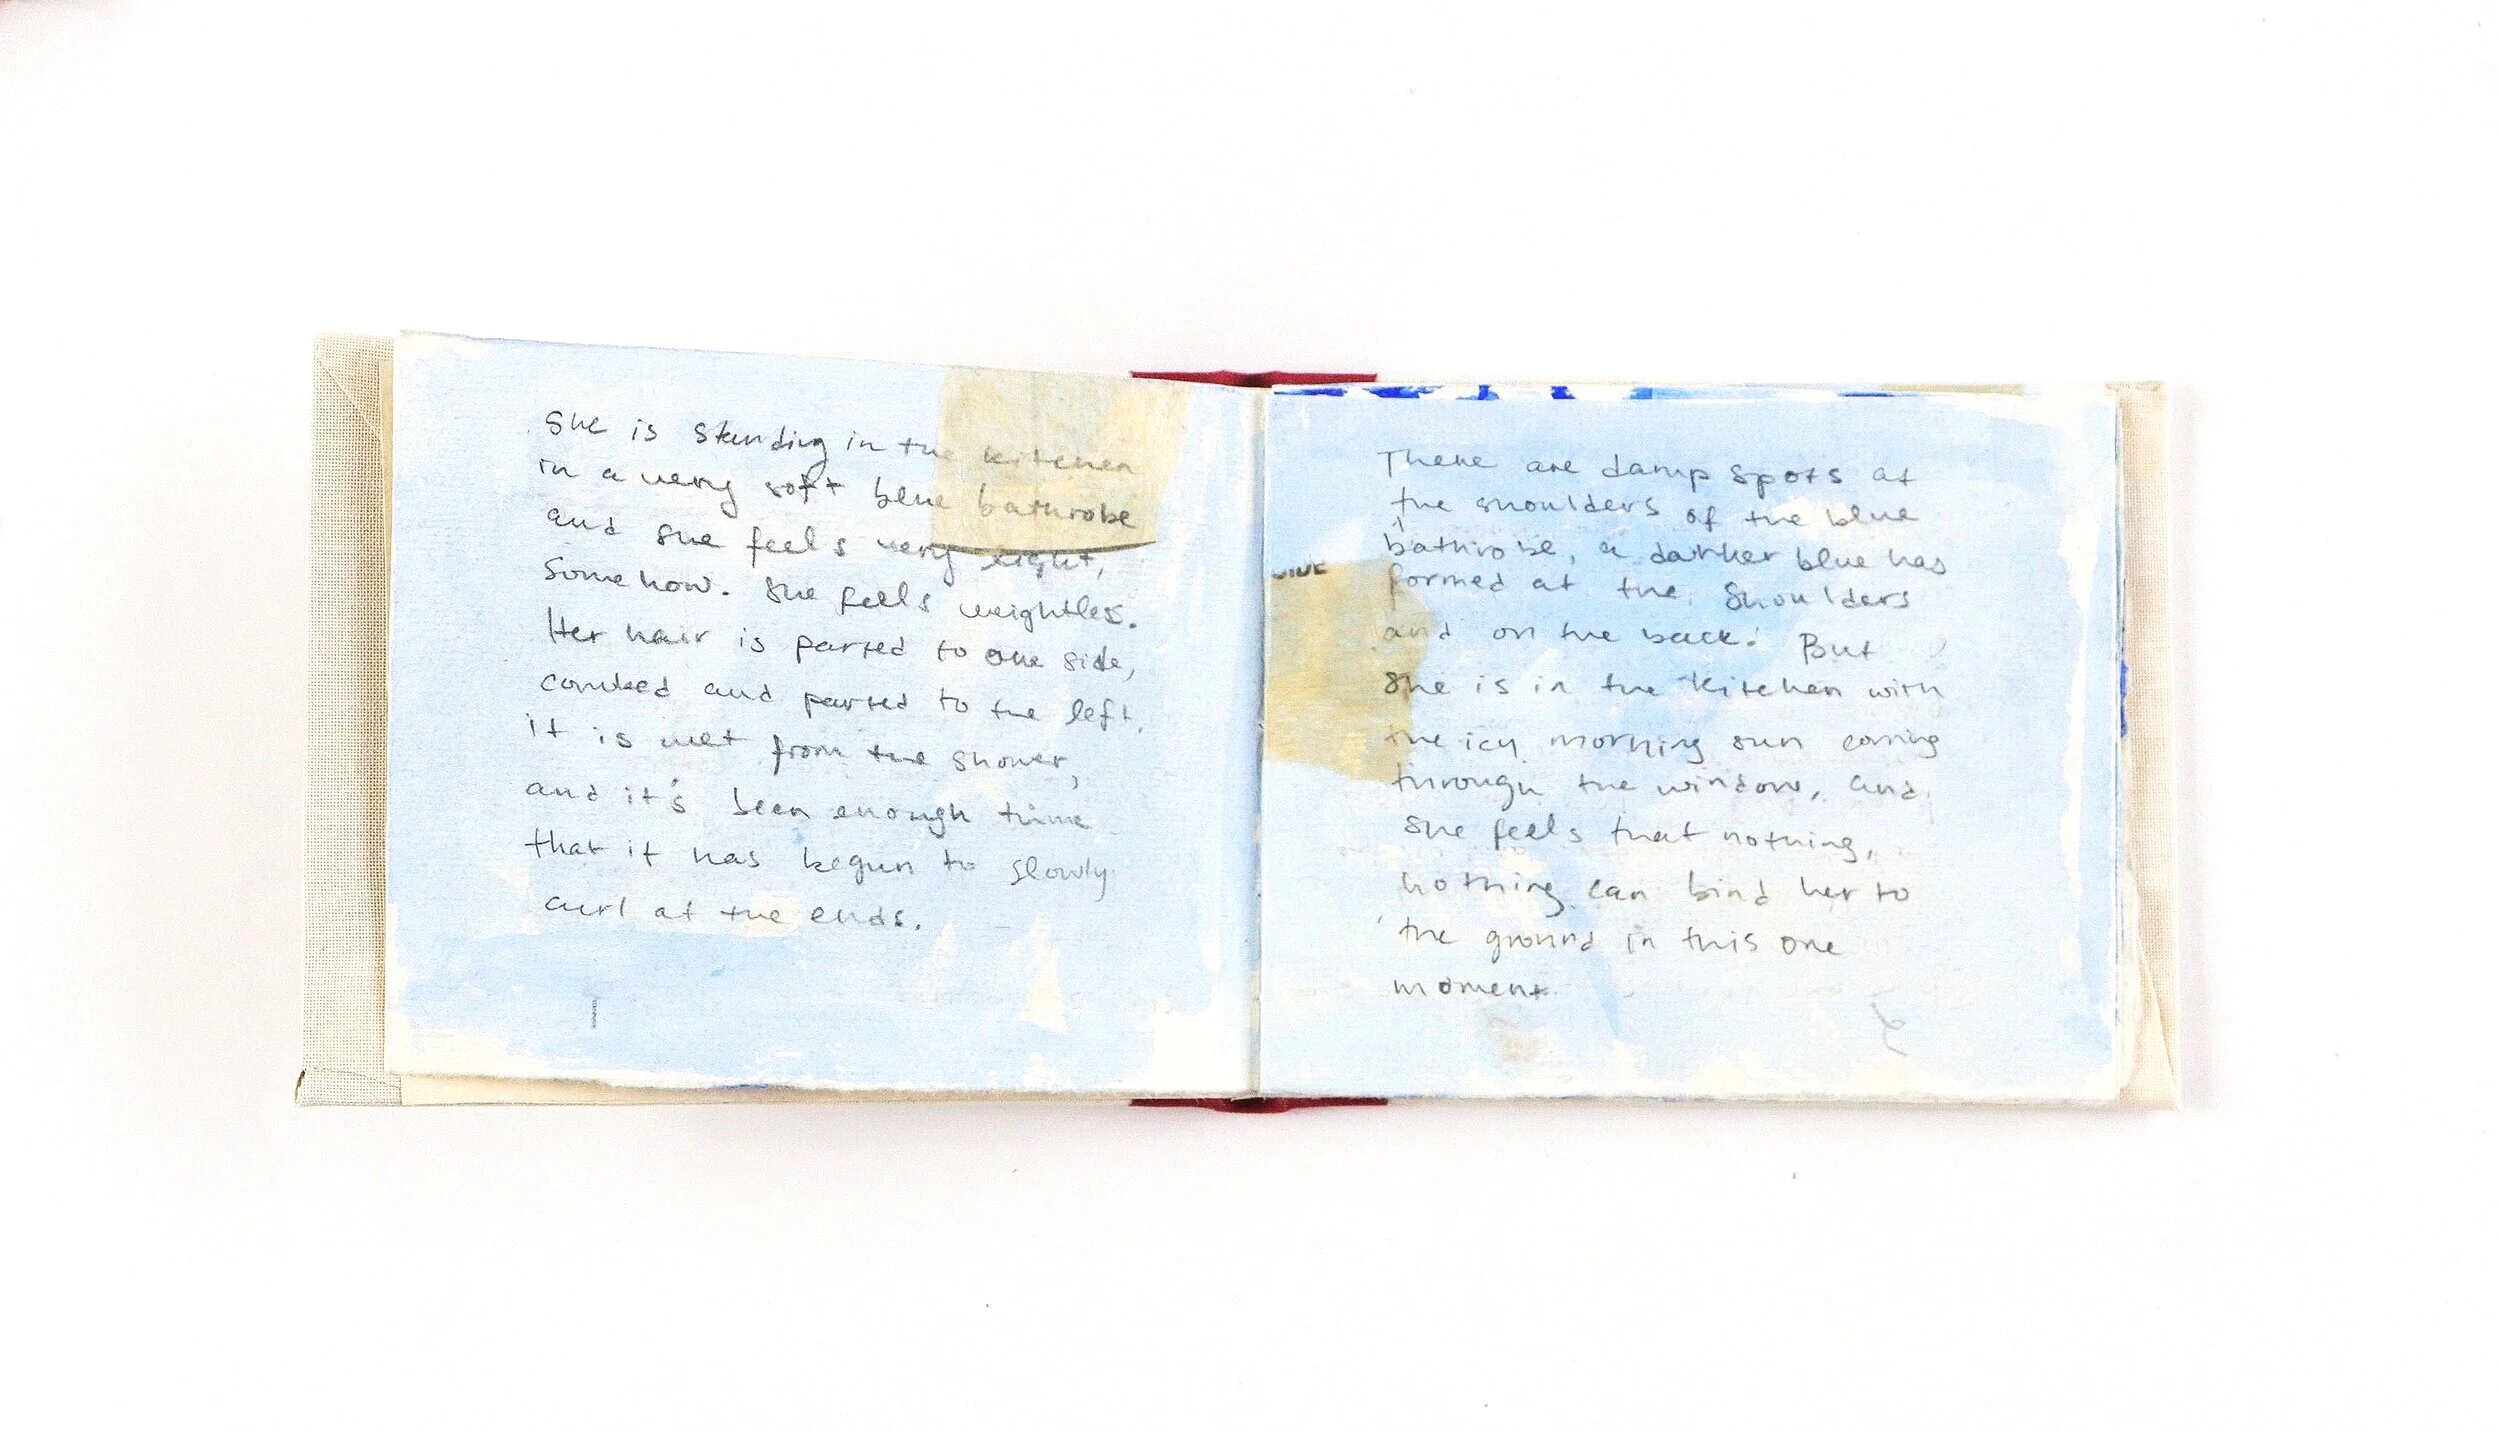 She is standing in the kitchen
in a very soft blue bathrobe
and she feels very light,
somehow. She feels weightless.
Her hair is parted to one side,
combed and parted to the left.
it is wet from the shower,
and it's been enough time
that it has begun to slowly
curl at the ends.
1
There are damp spots at
the shoulders of the blue
bathrobe, a darker blue has
formed at the shoulders
and on the back. But
she is in the kitchen with
the icy morning sun coming
through the window, and
she feels that nothing,
nothing can bind her to
the ground in this one
moment.